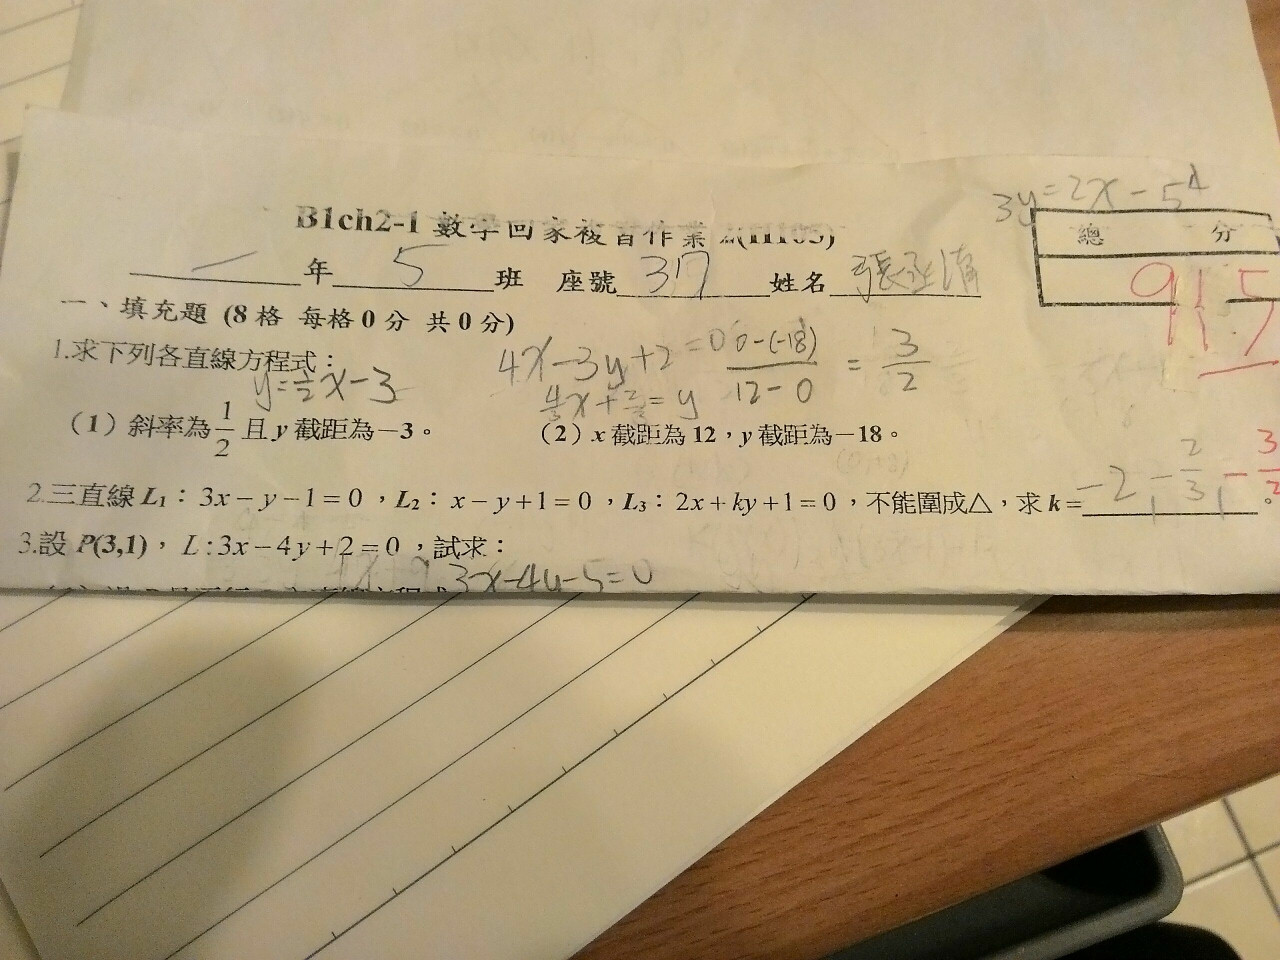 3y=2x-54
B1ch2-1 數學回家複習作業
總 分
91.5
一 年 5 班 座號 317 姓名 張
一、填充題 (8 格 每格 0 分 共 0 分)
1.求下列各直線方程式：
y=1/2x-3
4x-3y+2=0
0-(-18)/12-0 = 3/2
4/3x+2/3=y
(1) 斜率為 1/2 且 y 截距為-3。 (2) x 截距為 12，y 截距為-18。
2.三直線 L₁：3x-y-1=0，L₂：x-y+1=0，L₃：2x+ky+1=0，不能圍成△，求 k= -2, -2/3, -3/2。
3.設 P(3,1)，L:3x-4y+2=0，試求：
3x-4y-5=0